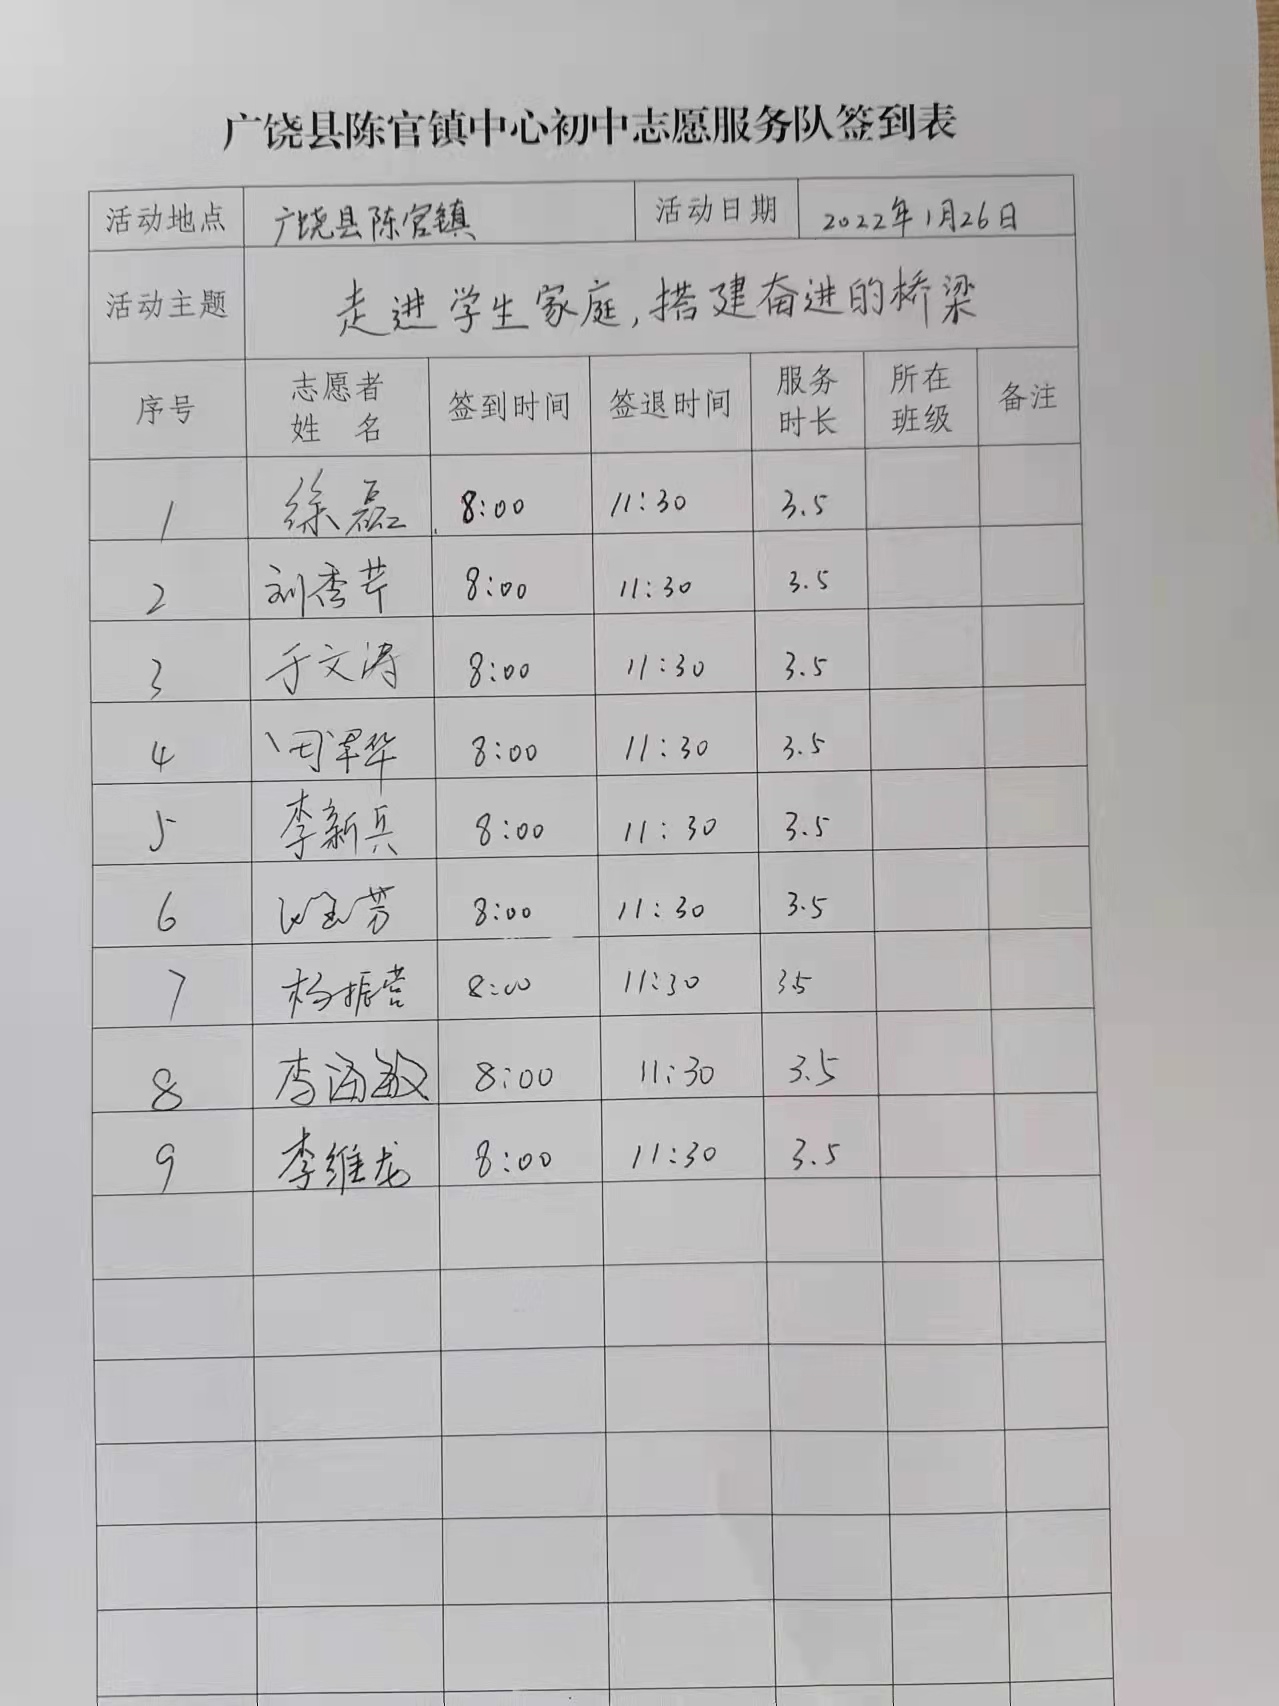 广饶县陈官镇中心初中志愿服务队签到表
活动地点 广饶县陈官镇 活动日期 2022年1月26日
活动主题 走进学生家庭,搭建奋进的桥梁
序号 志愿者姓名 签到时间 签退时间 服务时长 所在班级 备注
1 徐磊 8:00 11:30 3.5
2 刘秀芹 8:00 11:30 3.5
3 于文涛 8:00 11:30 3.5
4 8:00 11:30 3.5
5 李新兵 8:00 11:30 3.5
6 8:00 11:30 3.5
7 杨振营 8:00 11:30 3.5
8 李海敏 8:00 11:30 3.5
9 李维龙 8:00 11:30 3.5